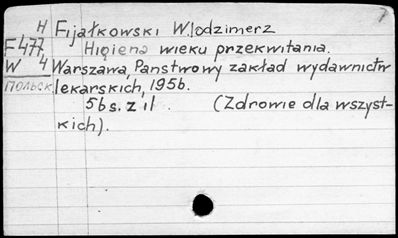 H Fijałkowski Wlodzimerz
F477 Higiena wieku przekwitania.
W 4 Warszawa, Panstwowy zakład wydawnictw
польск lekarskich, 1956.
56 s. z il. (Zdrowie dla wszyst-
kich).